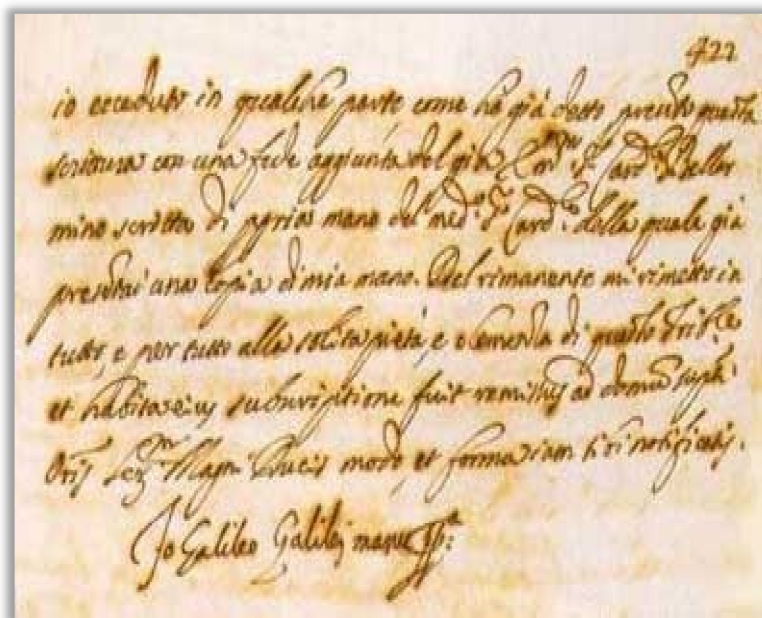 422
io ecceduto in qualche parte, come ho già detto presento questa
scrittura con una fede aggiunta del già Em.mo S.r Card.le Bellar
mino scritta di ppria mano del med.o S.r Card.le della quale già
presentai una copia di mia mano. Del rimanente mi rimetto in
tutto, e per tutto alla solita pietà, e clemenza di questo Trib.le
et habita eius subscriptione fuit remissus ad domum supti
Oris Ser.mi Magni Ducis modo, et forma iam sibi notificatis.
Io Galileo Galilei manu pp.a